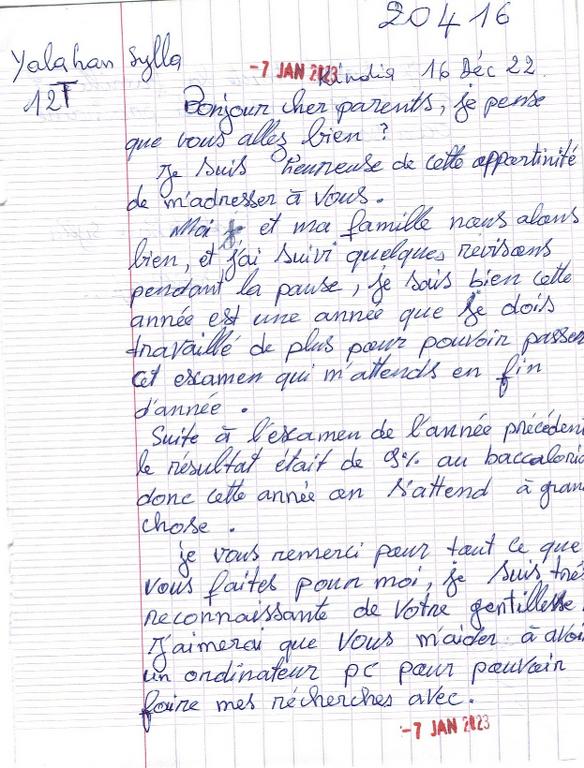 20416
Yalahan Sylla
-7 JAN 2023
Kindia 16 Déc 22.
12T
Bonjour cher parents, je pense
que vous allez bien ?
Je suis heureuse de cette oppartinité
de m'adresser à vous.
Moi et ma famille nous alons
bien, et j'ai suivi quelques revisons
pendant la pause, je sais bien cette
année est une année que je dois
travaillé de plus pour pouvoir passer
cet escamen qui m'attends en fin
d'année.
Suite à l'escamen de l'année précédent
le résultat était de 9% au baccaloria
donc cette année on s'attend à gran
chose.
je vous remerci pour tout ce que
vous faites pour moi, je suis trè
reconnaissante de votre gentillesse.
J'aimerai que vous m'aider à avoi
un ordinateur pc pour pouvoir
faire mes récherches avec.
-7 JAN 2023